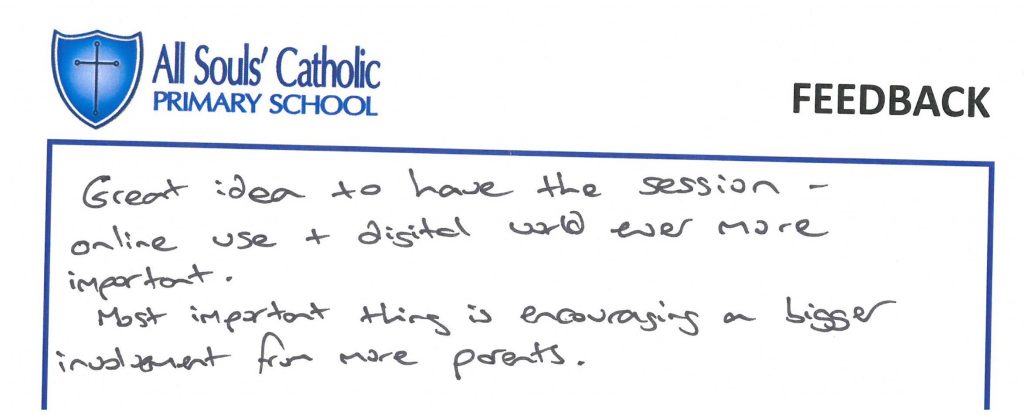 All Souls' Catholic
PRIMARY SCHOOL
FEEDBACK
Great idea to have the session -
online use + digital world ever more
important.
Most important thing is encouraging a bigger
involvement from more parents.